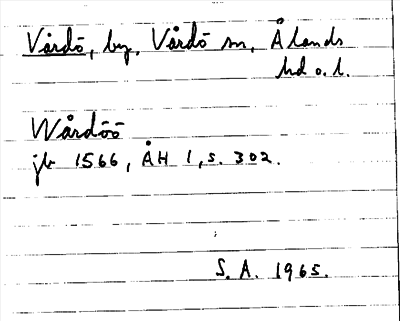 Vårdö, by, Vårdö sn, Ålands
hd o. l.
Wårdöö
jb 1566, ÅH 1, s. 302.
S. A. 1965.